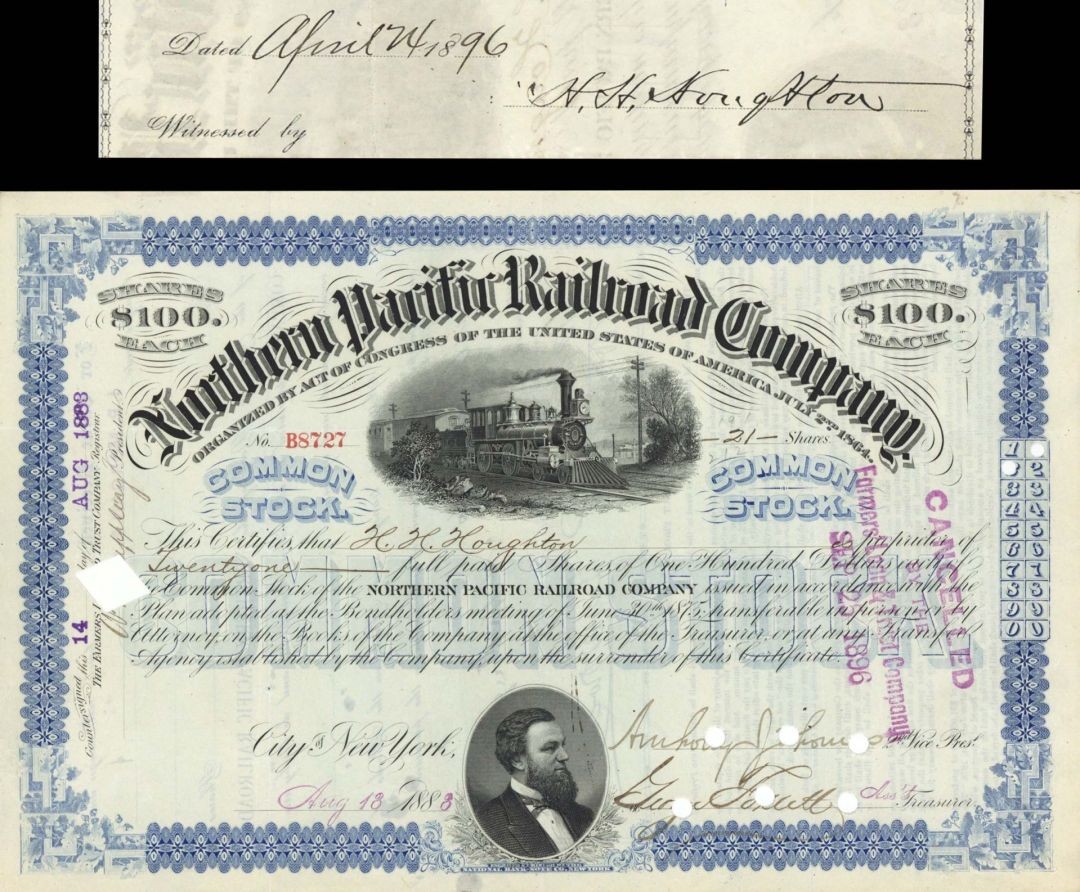 Dated April 24 1896
H. H. Houghton
Witnessed by
SHARES
$100.
EACH
SHARES
$100.
EACH
Northern Pacific Railroad Company,
ORGANIZED BY ACT OF CONGRESS OF THE UNITED STATES OF AMERICA, JULY 2ND 1864.
No. B8727
-21- Shares.
COMMON STOCK.
COMMON STOCK.
This Certifies that H. H. Houghton is proprietor of
Twenty one full paid Shares of One Hundred Dollars each of
the Common Stock of the NORTHERN PACIFIC RAILROAD COMPANY issued in accordance with the
Plan adopted at the Bondholders meeting of June 30th 1875, transferable in person or by
Attorney, on the Books of the Company at the office of the Treasurer, or at any Transfer
Agency established by the Company, upon the surrender of this Certificate.
COMMON STOCK
City of New York,
Aug 13 1883
Vice Prest.
George
Ass't Treasurer.
NATIONAL BANK NOTE CO. NEW YORK
Countersigned this 14 day of AUG 1883
THE FARMERS TRUST COMPANY, Registrar
President
CANCELLED
BY THE
Farmers Loan & Trust Company
1896
1
2
3 3
4 4
5 5
6 6
7 7
8 8
9 9
0 0